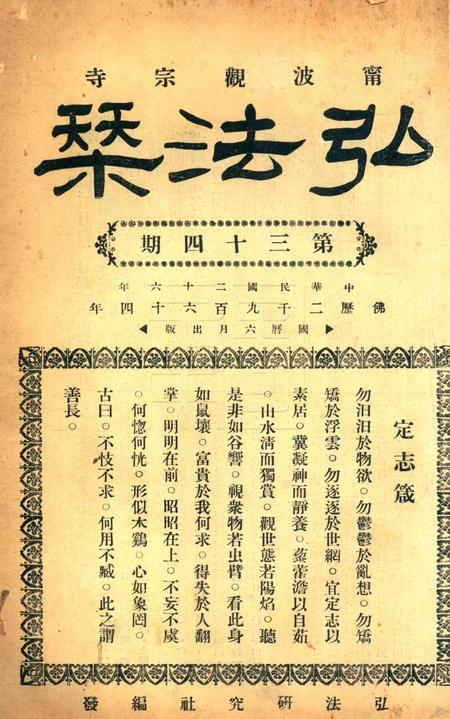 甯波觀宗寺
弘法栞
第三十四期
中華民國二十六年
佛歷二千九百六十四年
國曆六月出版
定志箴
勿汨汨於物欲。勿鬱鬱於亂想。勿矯
矯於浮雲。勿逐逐於世網。宜定志以
素居。冀凝神而靜養。藜藿澹以自茹
。山水清而獨賞。觀世態若陽焰。聽
是非如谷響。視衆物若虫臂。看此身
如鼠壤。富貴於我何求。得失於人翻
掌。明明在前。昭昭在上。不妄不虞
。何惚何恍。形似木鷄。心如象罔。
古曰。不忮不求。何用不臧。此之謂
善長。
弘法研究社編發